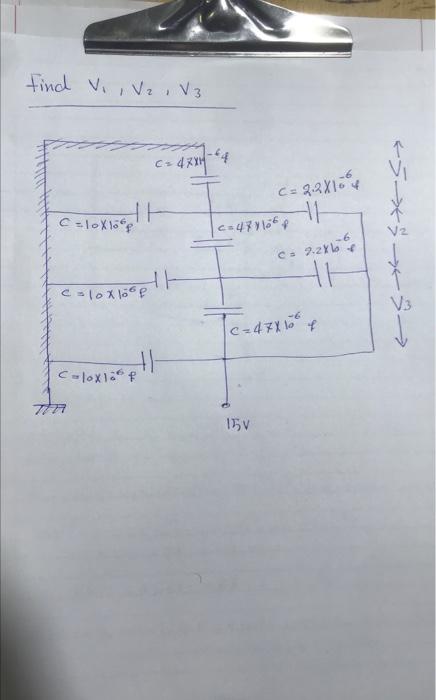 Find V₁, V₂, V₃
C = 47×10⁻⁶ f
C = 2.2×10⁻⁶ f
V₁
C = 10×10⁻⁶ f
C = 47×10⁻⁶ f
V₂
C = 2.2×10⁻⁶ f
C = 10×10⁻⁶ f
V₃
C = 47×10⁻⁶ f
C = 10×10⁻⁶ f
15V